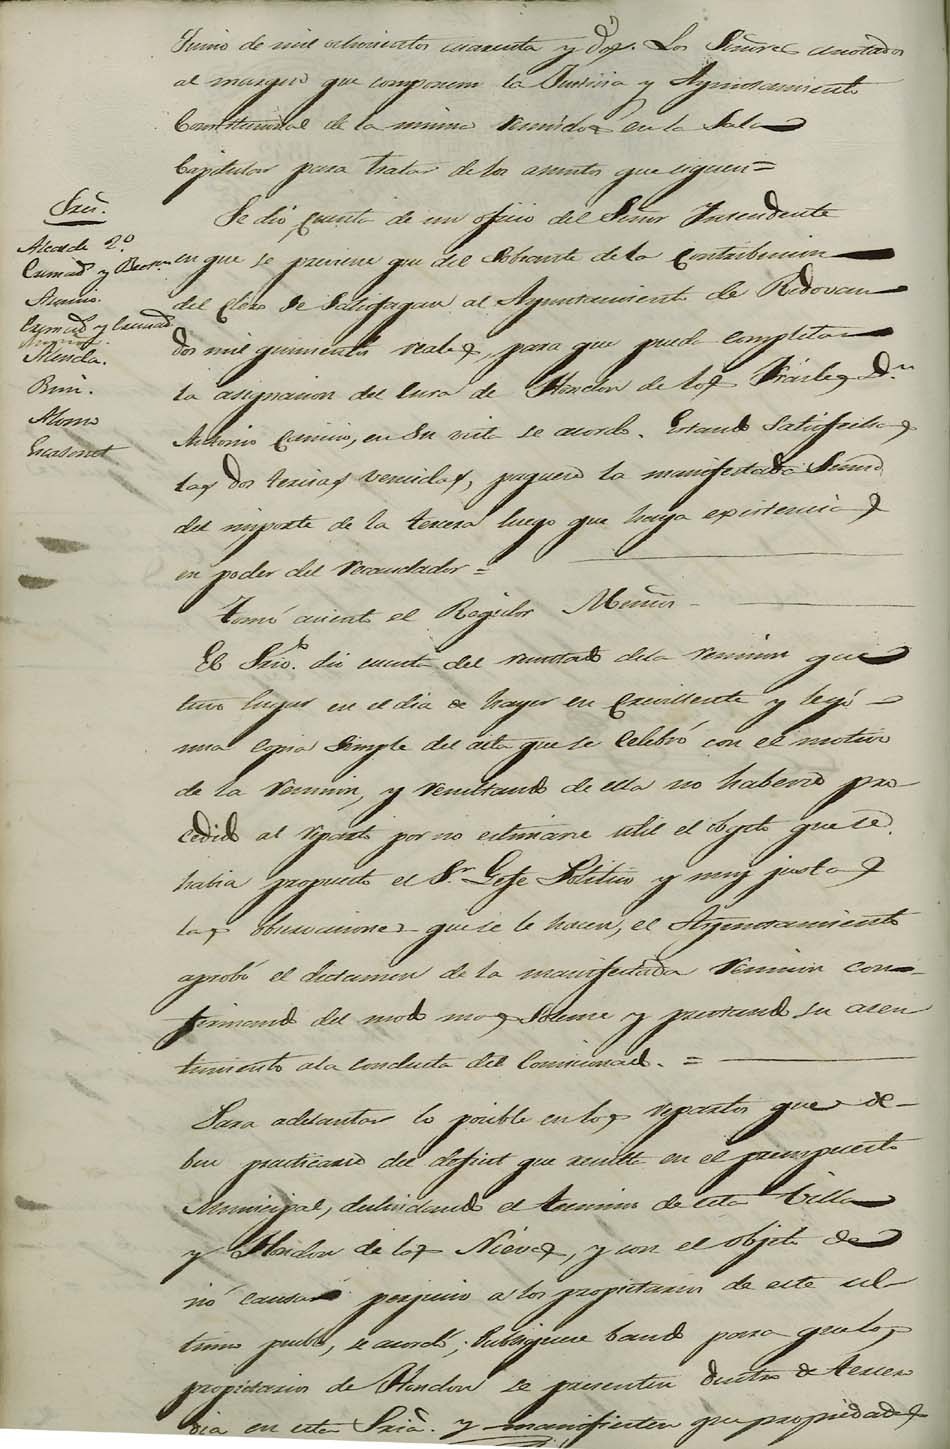 Junio de mil ochocientos cuarenta y dos. Los Señores anotados
al margen que componen la Justicia y Ayuntamiento
Constitucional de la misma reunidos en la Sala
Capitular para tratar de los asuntos que siguen=
Sres.
Alcalde 2º
Mira.
Alenda.
Escasonet
Se dió cuenta de un oficio del Señor Intendente
en que se previene que del sobrante de la Contribucion
del Clero se satisfagan al Ayuntamiento de Redovan
dos mil quinientos reales, para que pueda completar
la asignacion del Cura de Hondon de los Frailes Dn.
Antonio Canicio, en su vista se acordó. Estando satisfechos
las dos tercias vencidas, paguese la manifestada suma
del importe de la tercera luego que haya existencias
en poder del recaudador=
Tomó asiento el Regidor
El Srio. dió cuenta del resultado dela reunion que
tuvo lugar en el dia de hayer en Crevillente y leyó
una copia simple del acta que se celebró con el motivo
de la reunion, y resultando de ella no haberse pro-
cedido al reparto por no estimarse util el objeto que se
habia propuesto el Sr. Gefe Politico y muy justas
las observaciones que se le hacen, el Ayuntamiento
aprobó el dictamen de la manifestada reunion con-
firmando del modo mas solemne y prestando su asen
timiento ala conducta del Comisionado. =
Para adelantar lo posible en los repartos que de-
ben practicarse del deficit que resulta en el presupuesto
Municipal, deslindando el termino de esta Villa
y Hondon de las Nieves, y con el objeto de
nó causar perjuicio a los propietarios de este ul-
timo pueblo, se acordó; Publiquese bando para que los
propietarios de Hondon se presenten dentro de tercero
dia en esta Sria. y manifiesten que propiedades